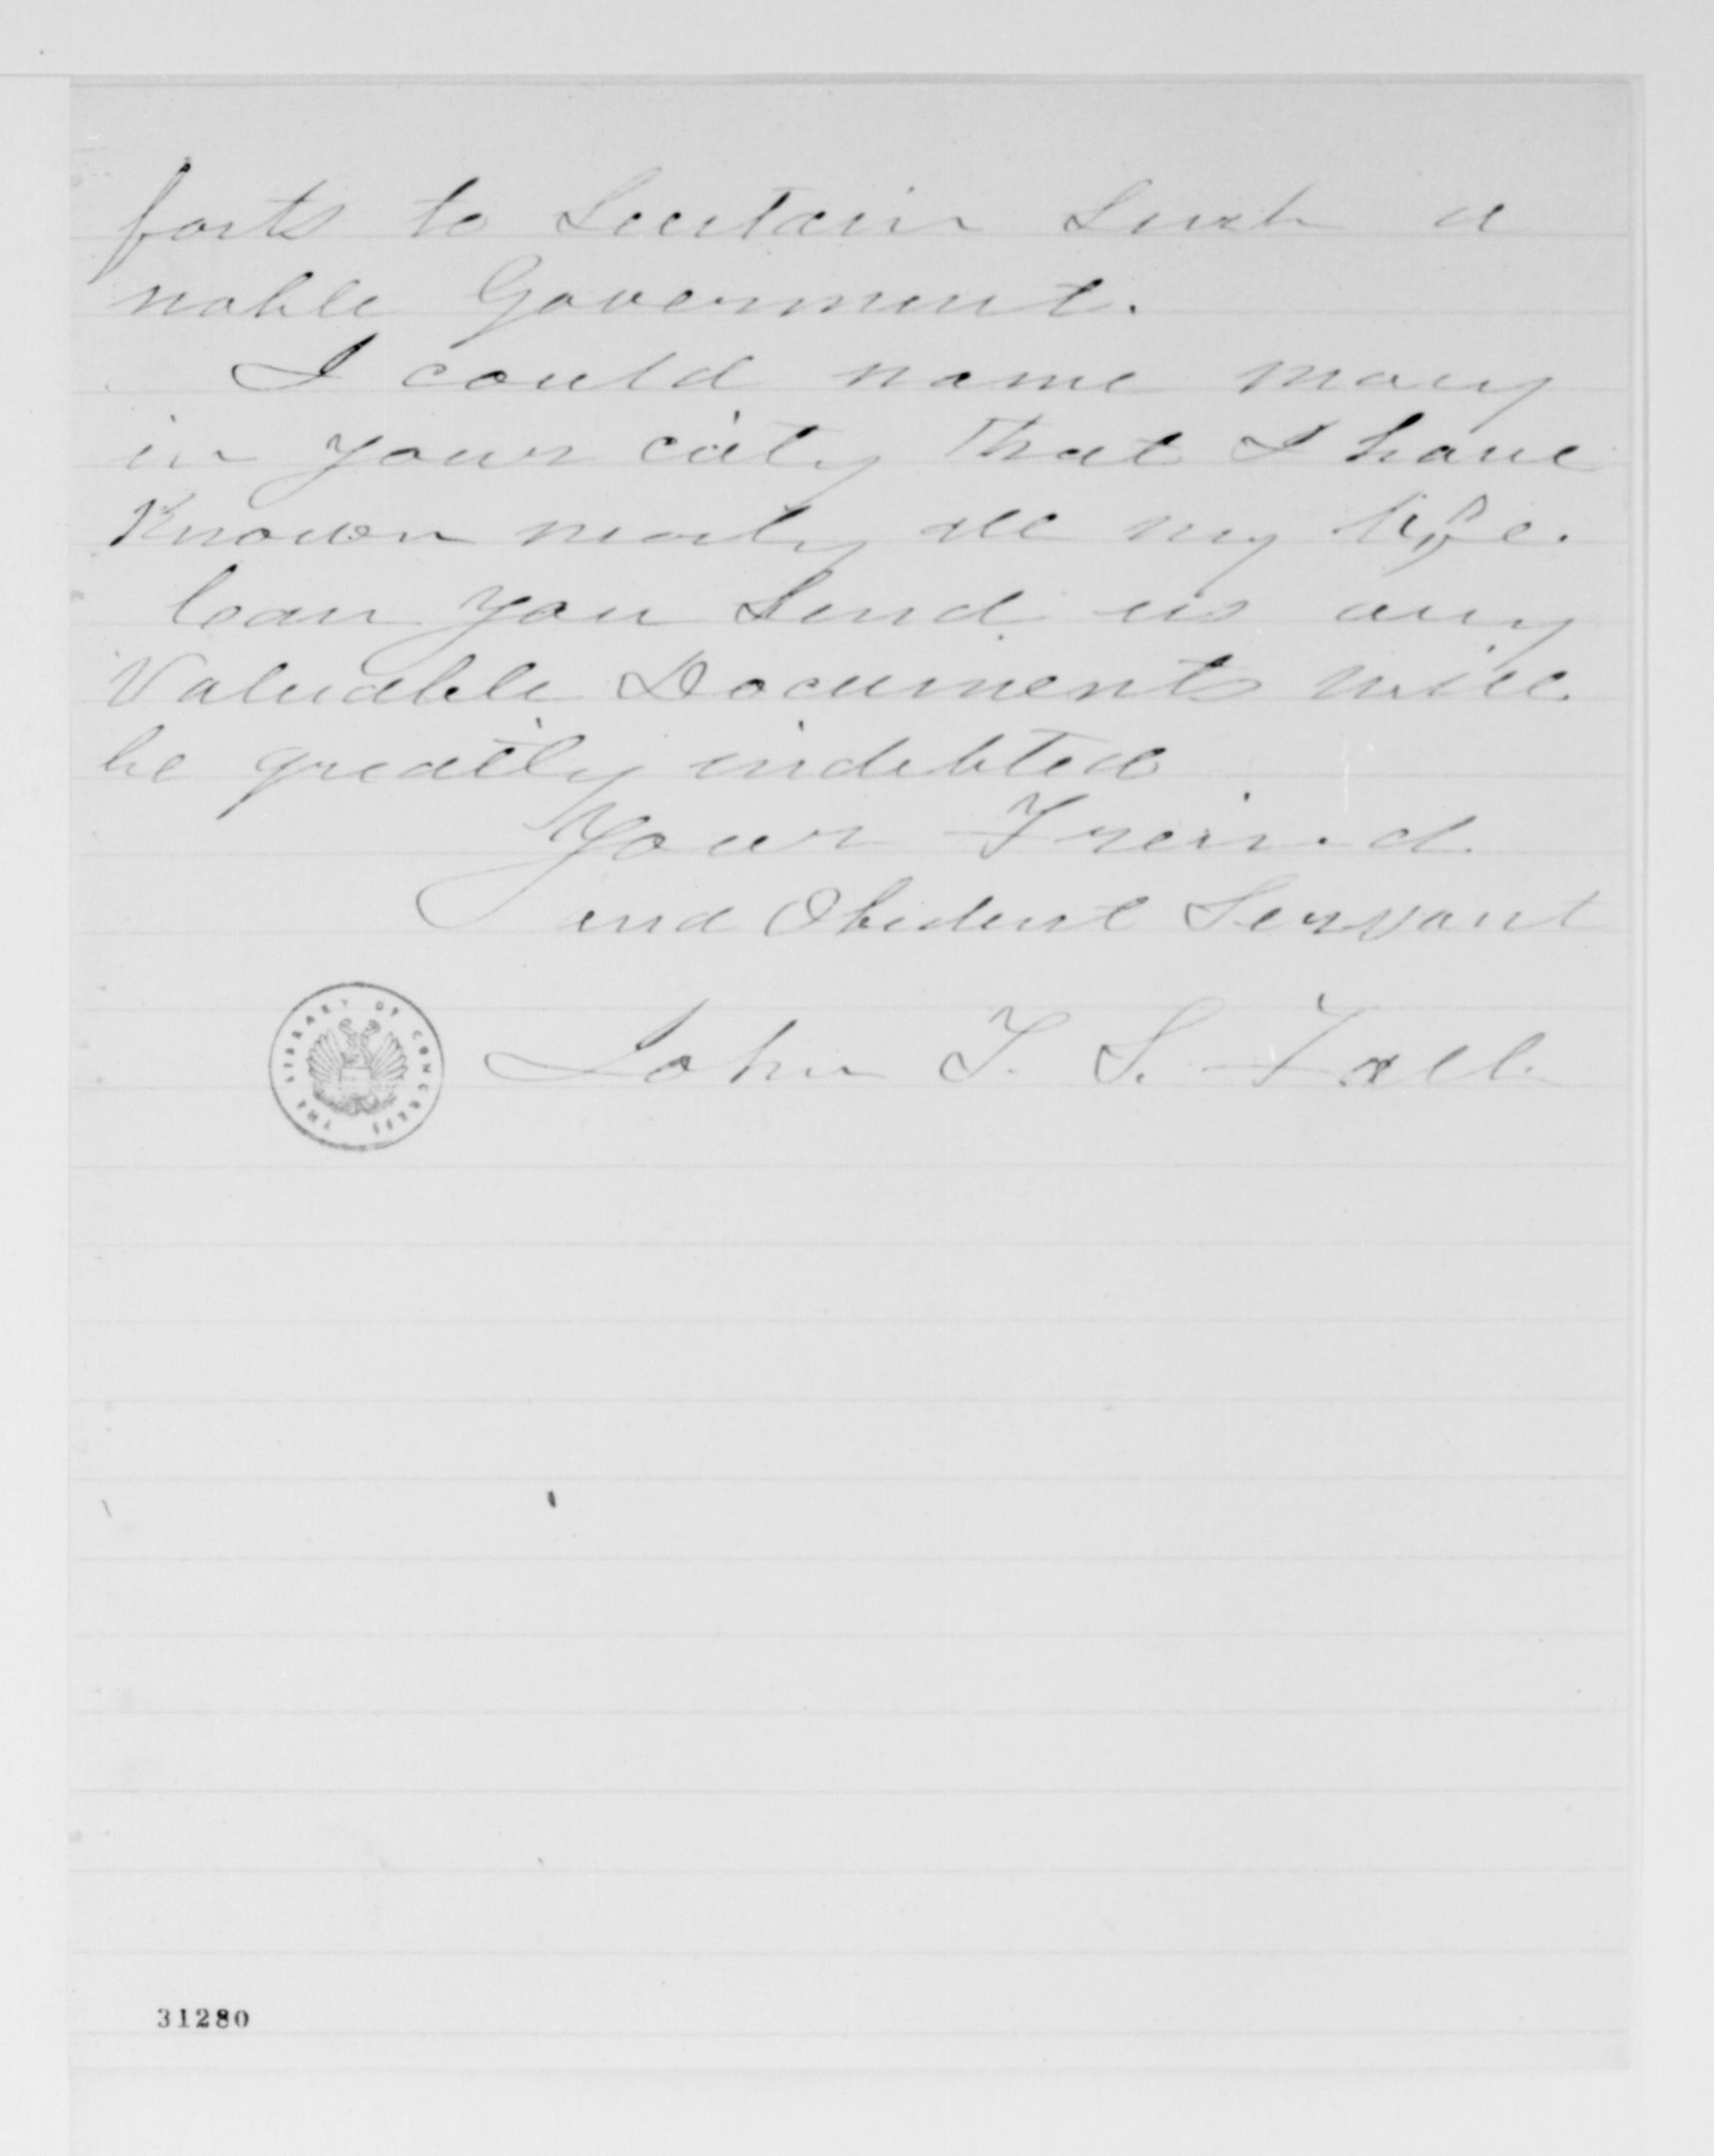 forts to Sustain Such a
noble Goverment.
I could name many
in your city that I have
Known nearly all my life.
Can you Send us any
Valuable Documents will
be greatly indebted
Your Freind
and Obident Servant
John T. S. Fall
THE LIBRARY OF CONGRESS
31280